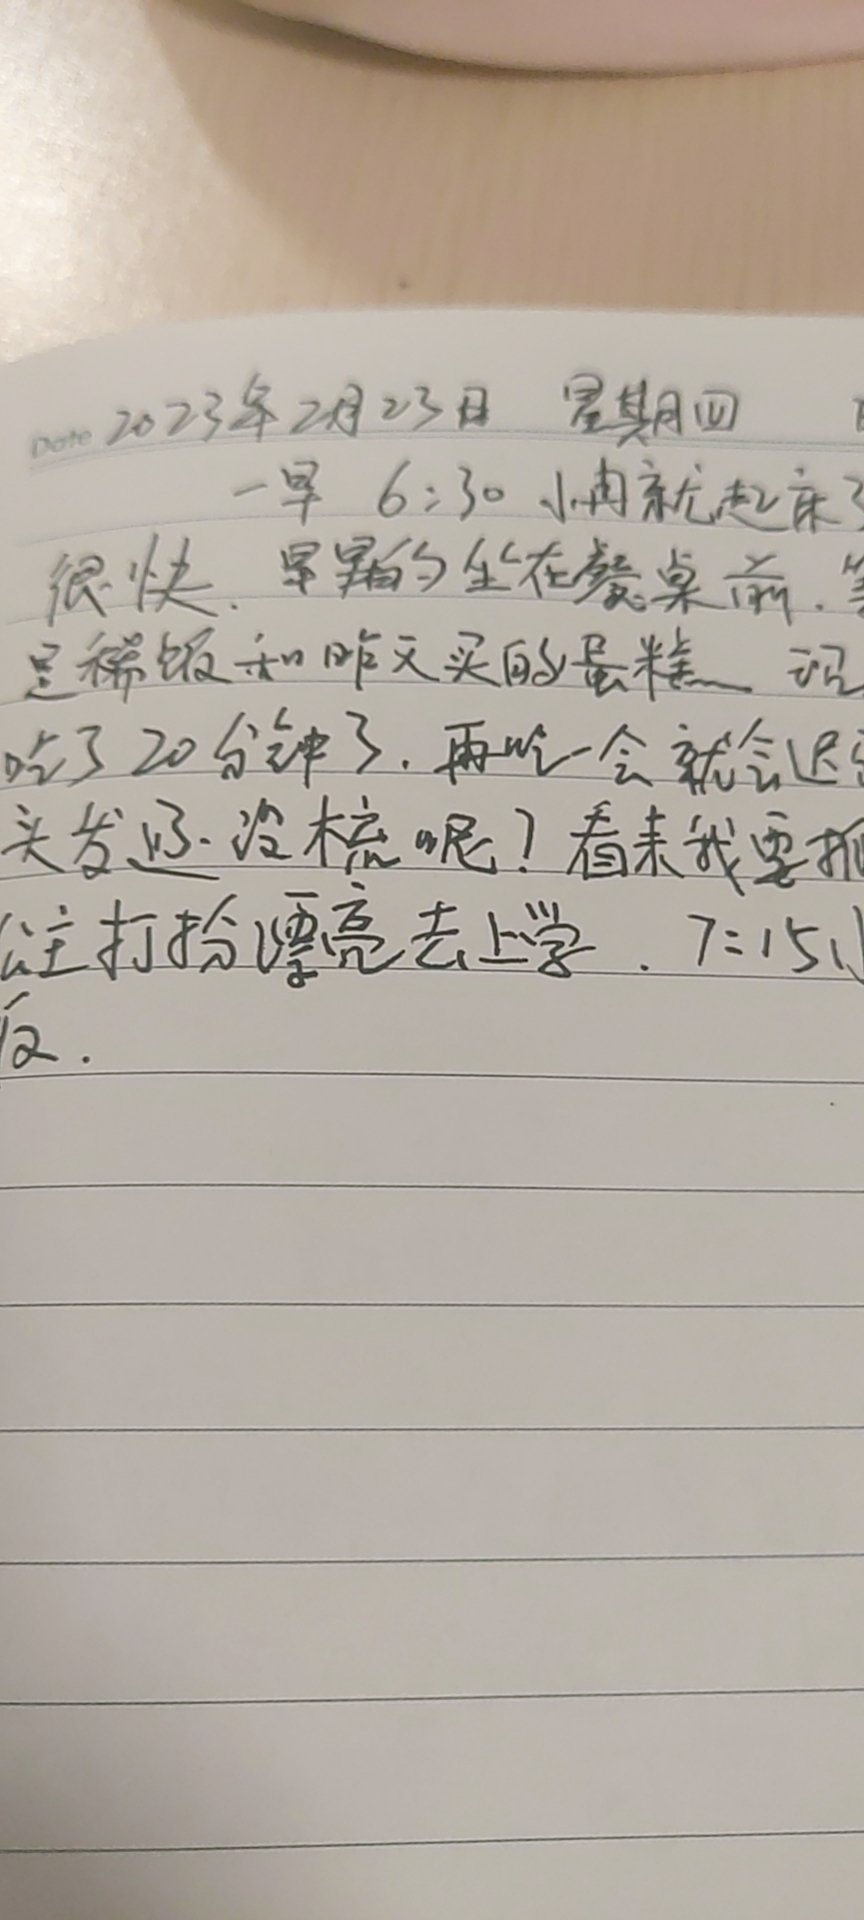 Date 2023年2月23日 星期四
一早 6:30 小雨就起床了
很快、早早的坐在餐桌前、等
是稀饭和昨天买的蛋糕 记
吃了20分钟了、再吃一会就会迟
头发还没梳呢？看来我要抓
公主打扮漂亮去上学．7:15小
饭．